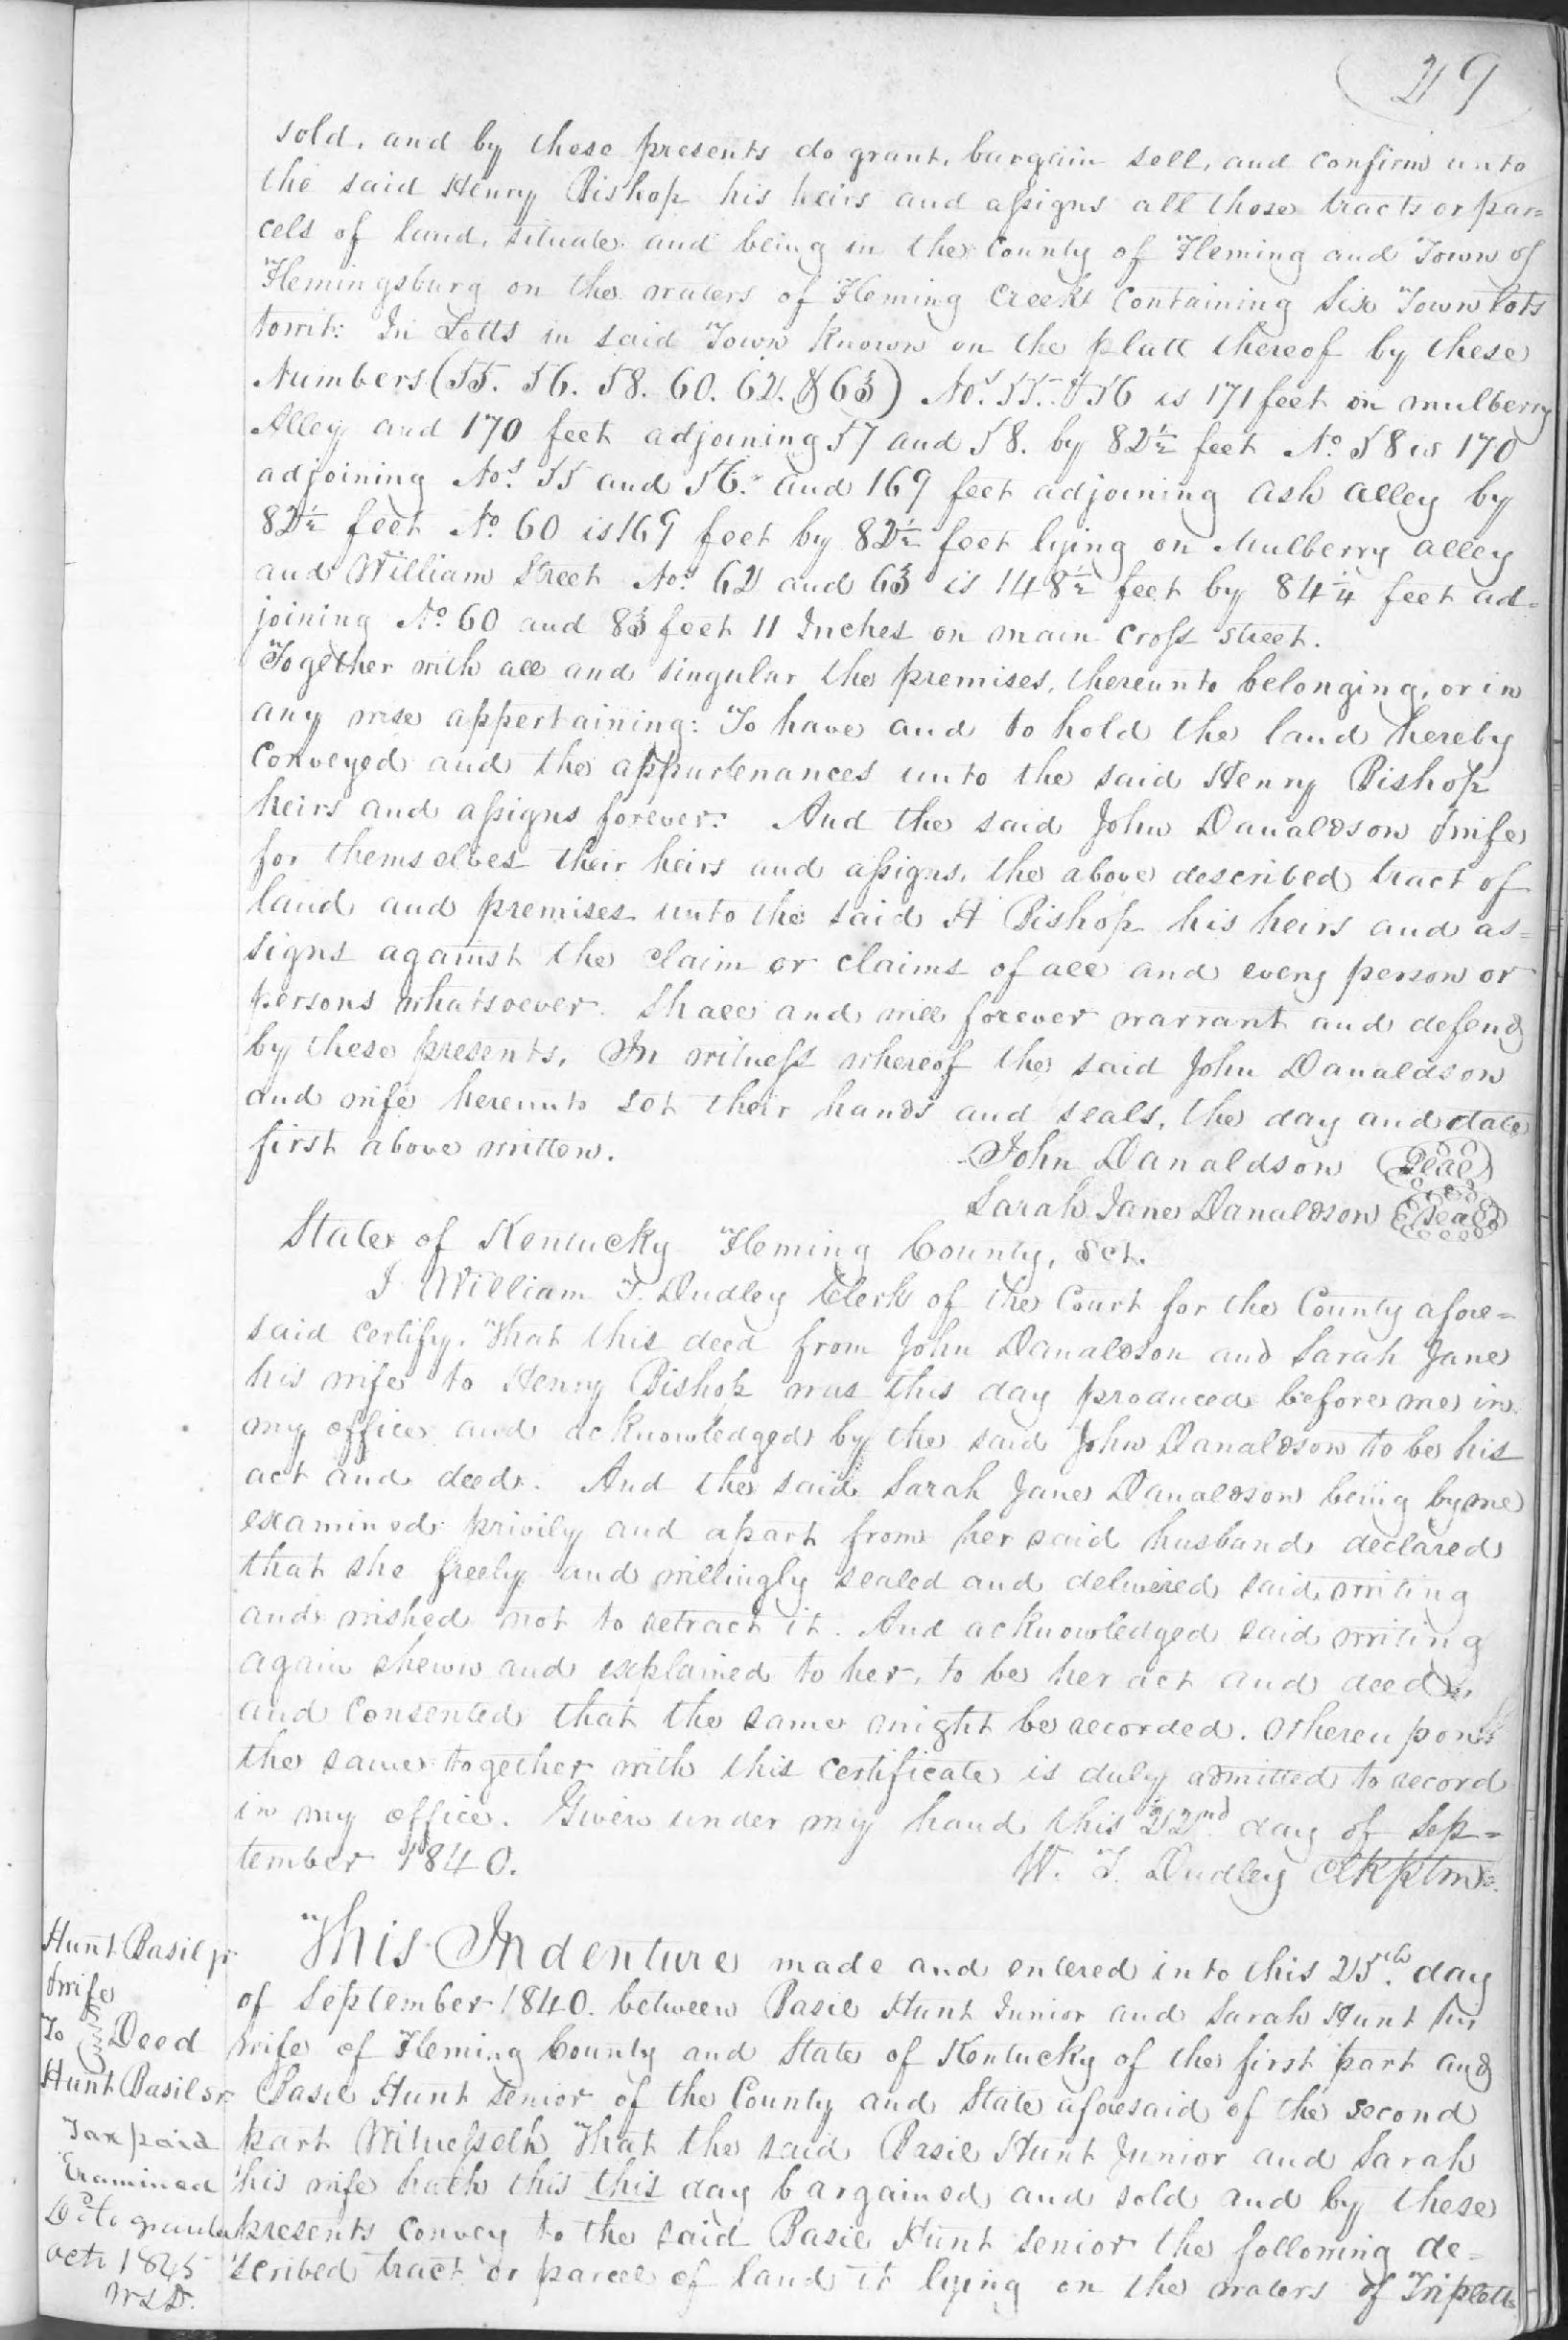 29
sold, and by these presents do grant, bargain sell, and confirm unto
the said Henry Bishop his heirs and assigns all those tracts or par=
cels of land, situate and being in the County of Fleming and Town of
Flemingsburg on the waters of Fleming Creek Containing Six Town lots
towit: In Lotts in said Town known on the platt thereof by these
Numbers (55. 56. 58. 60. 62. & 63) Nos. 55. & 56 is 171 feet on mulberry
Alley and 170 feet adjoining 57 and 58. by 82½ feet No. 58 is 170
adjoining Nos. 55 and 56. and 169 feet adjoining ash alley by
82½ feet No. 60 is 169 feet by 82½ feet lying on Mulberry alley
and William Street Nos. 62 and 63 is 148½ feet by 84¼ feet ad=
joining No. 60 and 83 feet 11 Inches on main Cross street.
Together with all and singular the premises, thereunto belonging, or in
any wise appertaining: To have and to hold the land hereby
Conveyed and the appurtenances unto the said Henry Bishop
heirs and assigns forever. And the said John Danaldson & wife
for themselves their heirs and assigns, the above described tract of
land and premises unto the said H Bishop his heirs and as=
signs against the claim or claims of all and every person or
persons whatsoever. Shall and will forever warrant and defend
by these presents, In witness whereof the said John Danaldson
and wife hereunto set their hands and seals, the day and date
first above written.
John Danaldson (Seal)
Sarah Jane Danaldson (Seal)
State of Kentucky Fleming County, Sct.
I William T. Dudley Clerk of the Court for the County afore=
said certify. That this deed from John Danaldson and Sarah Jane
his wife to Henry Bishop was this day produced before me in
my office and acknowledged by the said John Danaldson to be his
act and deed. And the said Sarah Jane Danaldson being by me
examined privily and apart from her said husband, declared
that she freely and willingly sealed and delivered said writing
and wished not to retract it. And acknowledged said writing
again shewn and explained to her, to be her act and deed,
and Consented that the same might be recorded. Whereupon
the same together with this certificate is duly admitted to record
in my office. Given under my hand this 22nd day of Sep=
tember 1840.
W. T. Dudley
Hunt Basil jr
& wife
To } Deed
Hunt Basil sr
Tax paid
Examined
Octr 1845
This Indenture made and entered into this 25th day
of September 1840. between Basil Hunt Junior and Sarah Hunt his
wife of Fleming County and State of Kentucky of the first part and
Basil Hunt senior of the County and State aforesaid of the second
part Witnesseth That the said Basil Hunt Junior and Sarah
his wife hath this this day bargained and sold and by these
presents convey to the said Basil Hunt senior the following de=
scribed tract or parcel of land it lying on the waters of Tripletts